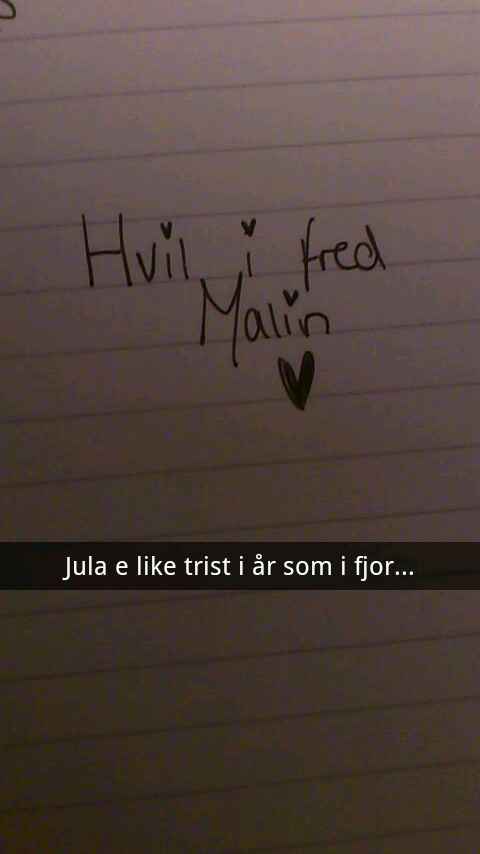 Hvil i fred
Malin
Jula e like trist i år som i fjor...